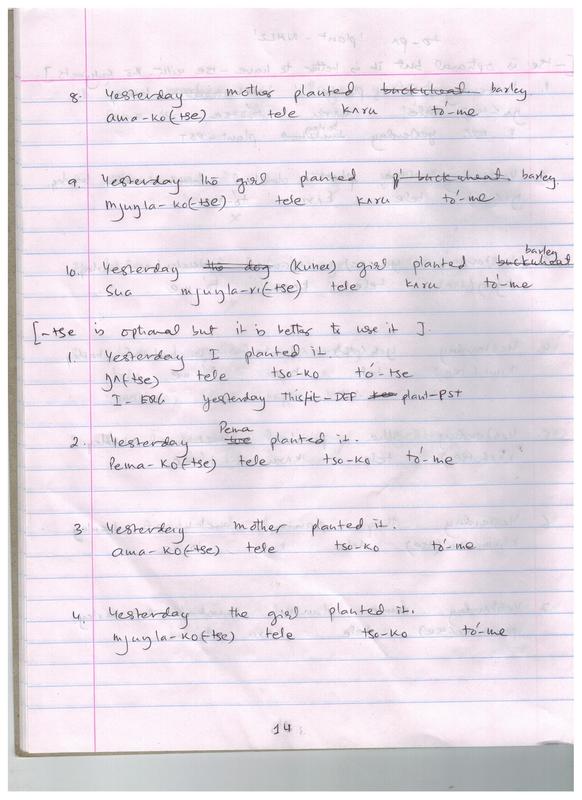 8. Yesterday mother planted buckwheat barley
ama-ko(-tse) tele kʌru to-me
9. Yesterday the girl planted buckwheat. barley.
mjuŋla-ko(-tse) tele kʌru to-me
barley
10. Yesterday the dog (Kunes) girl planted buckwheat
Sua mjuŋla-ri(-tse) tele kʌru to-me
[-tse is optional but it is better to use it].
1. Yesterday I planted it.
ŋʌ(tse) tele tso-ko to-tse
I-ERG yesterday This/it-DEF plant-PST
Pema
2. Yesterday planted it.
Pema-ko(-tse) tele tso-ko to-me
3. Yesterday mother planted it.
ama-ko(-tse) tele tso-ko to-me
4. Yesterday the girl planted it.
mjuŋla-ko(-tse) tele tso-ko to-me
14